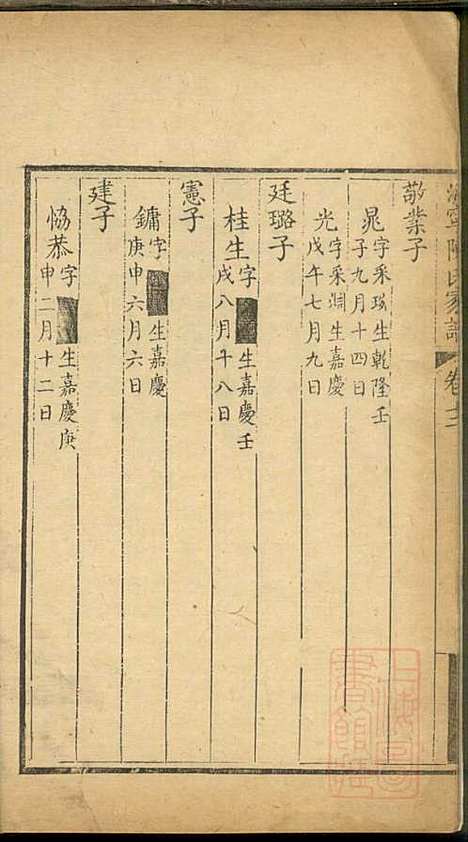 海寧陳氏家譜 卷十二
敬業子
晁 字采瑤生乾隆壬
子九月十四日
光 字采烱生嘉慶
戊午七月九日
廷璐子
桂生 字 生嘉慶壬
戌八月廿八日
憲子
鏞 字 生嘉慶
庚申六月六日
建子
恊恭 字 生嘉慶庚
申二月十二日
上海圖書館藏